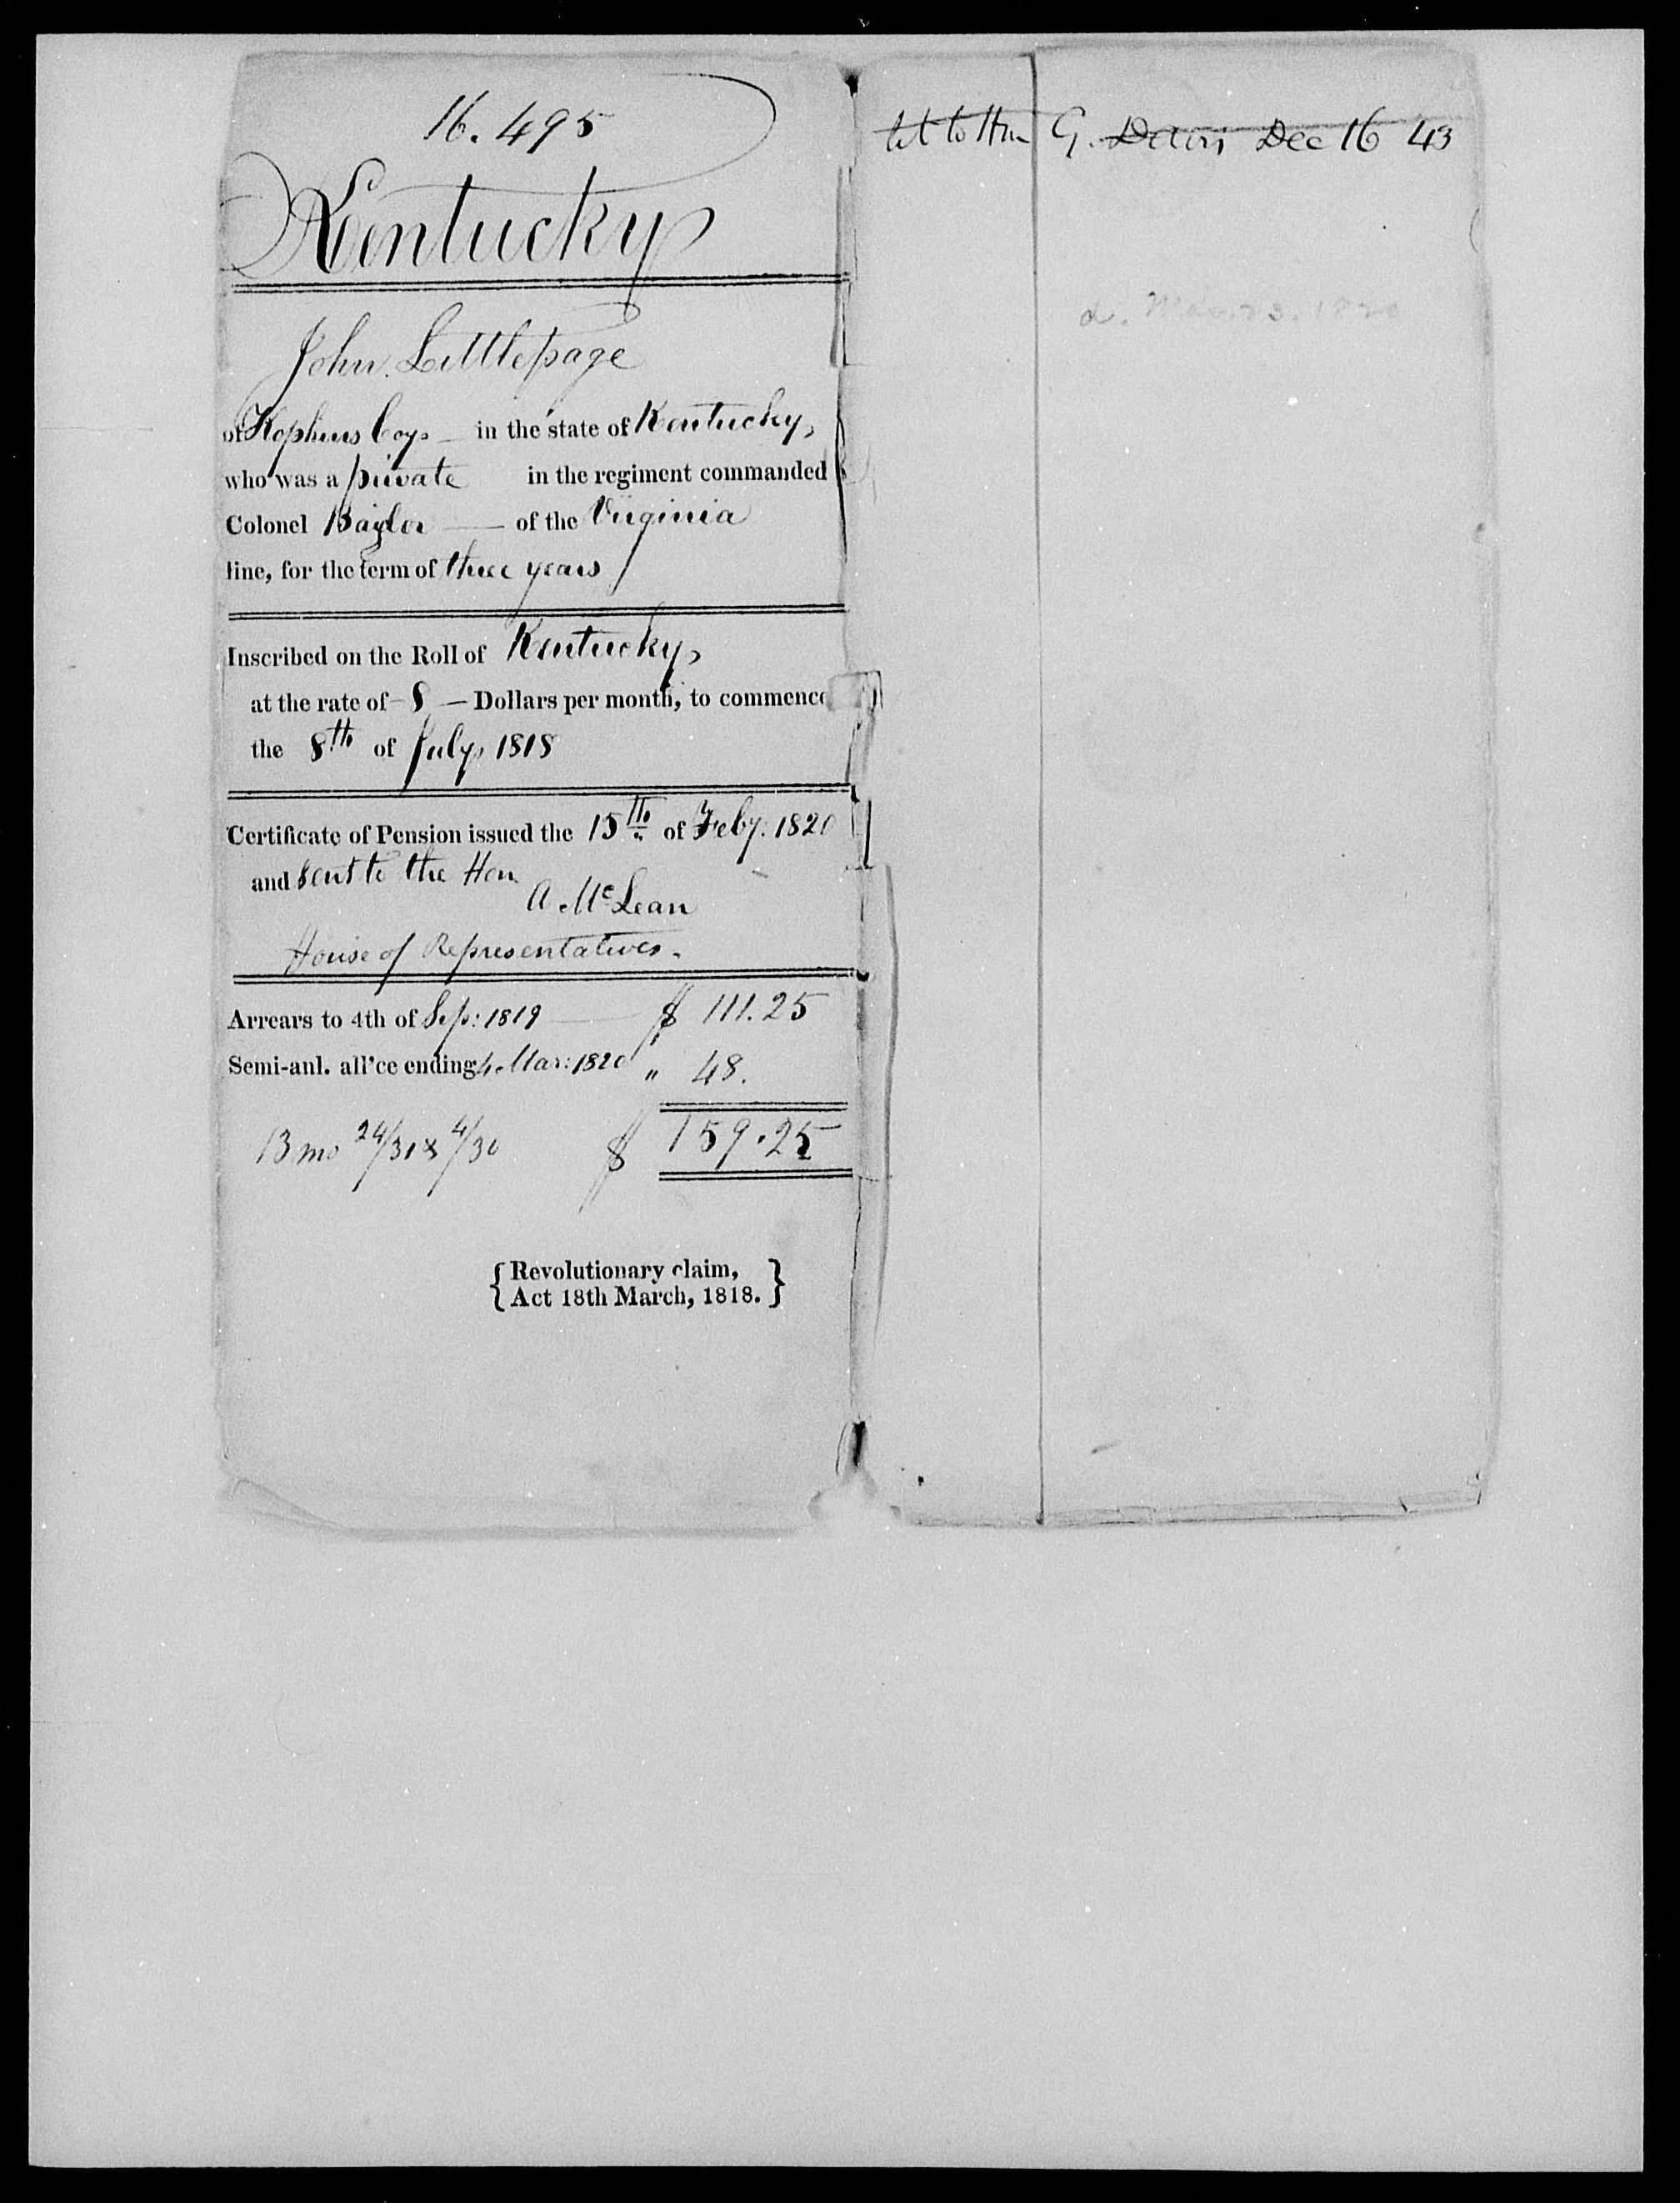 16.495
Kentucky
John Littlepage
of Hopkins Coy. in the state of Kentucky,
who was a private in the regiment commanded
Colonel Baylor of the Virginia
line, for the term of three years
Inscribed on the Roll of Kentucky,
at the rate of 8 Dollars per month, to commence
the 8th of July, 1818
Certificate of Pension issued the 15th of Feby. 1820
and sent to the Hon
A. McLean
House of Representatives.
Arrears to 4th of Sep: 1819 $ 111.25
Semi-anl. all'ce ending 4 Mar: 1820 " 48.
13 mo 24/31 & 4/30 $ 159.25
{Revolutionary claim,
Act 18th March, 1818.}
let to Hon G. Davis Dec 16 43
d. 1820